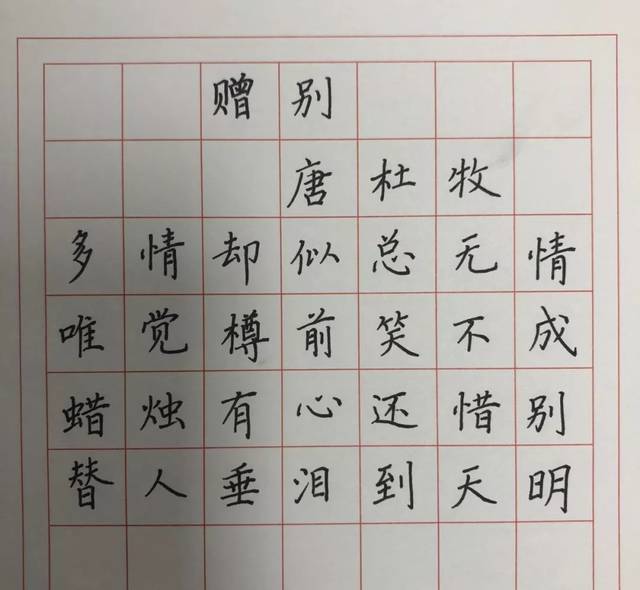 赠别
唐杜牧
多情却似总无情
唯觉樽前笑不成
蜡烛有心还惜别
替人垂泪到天明